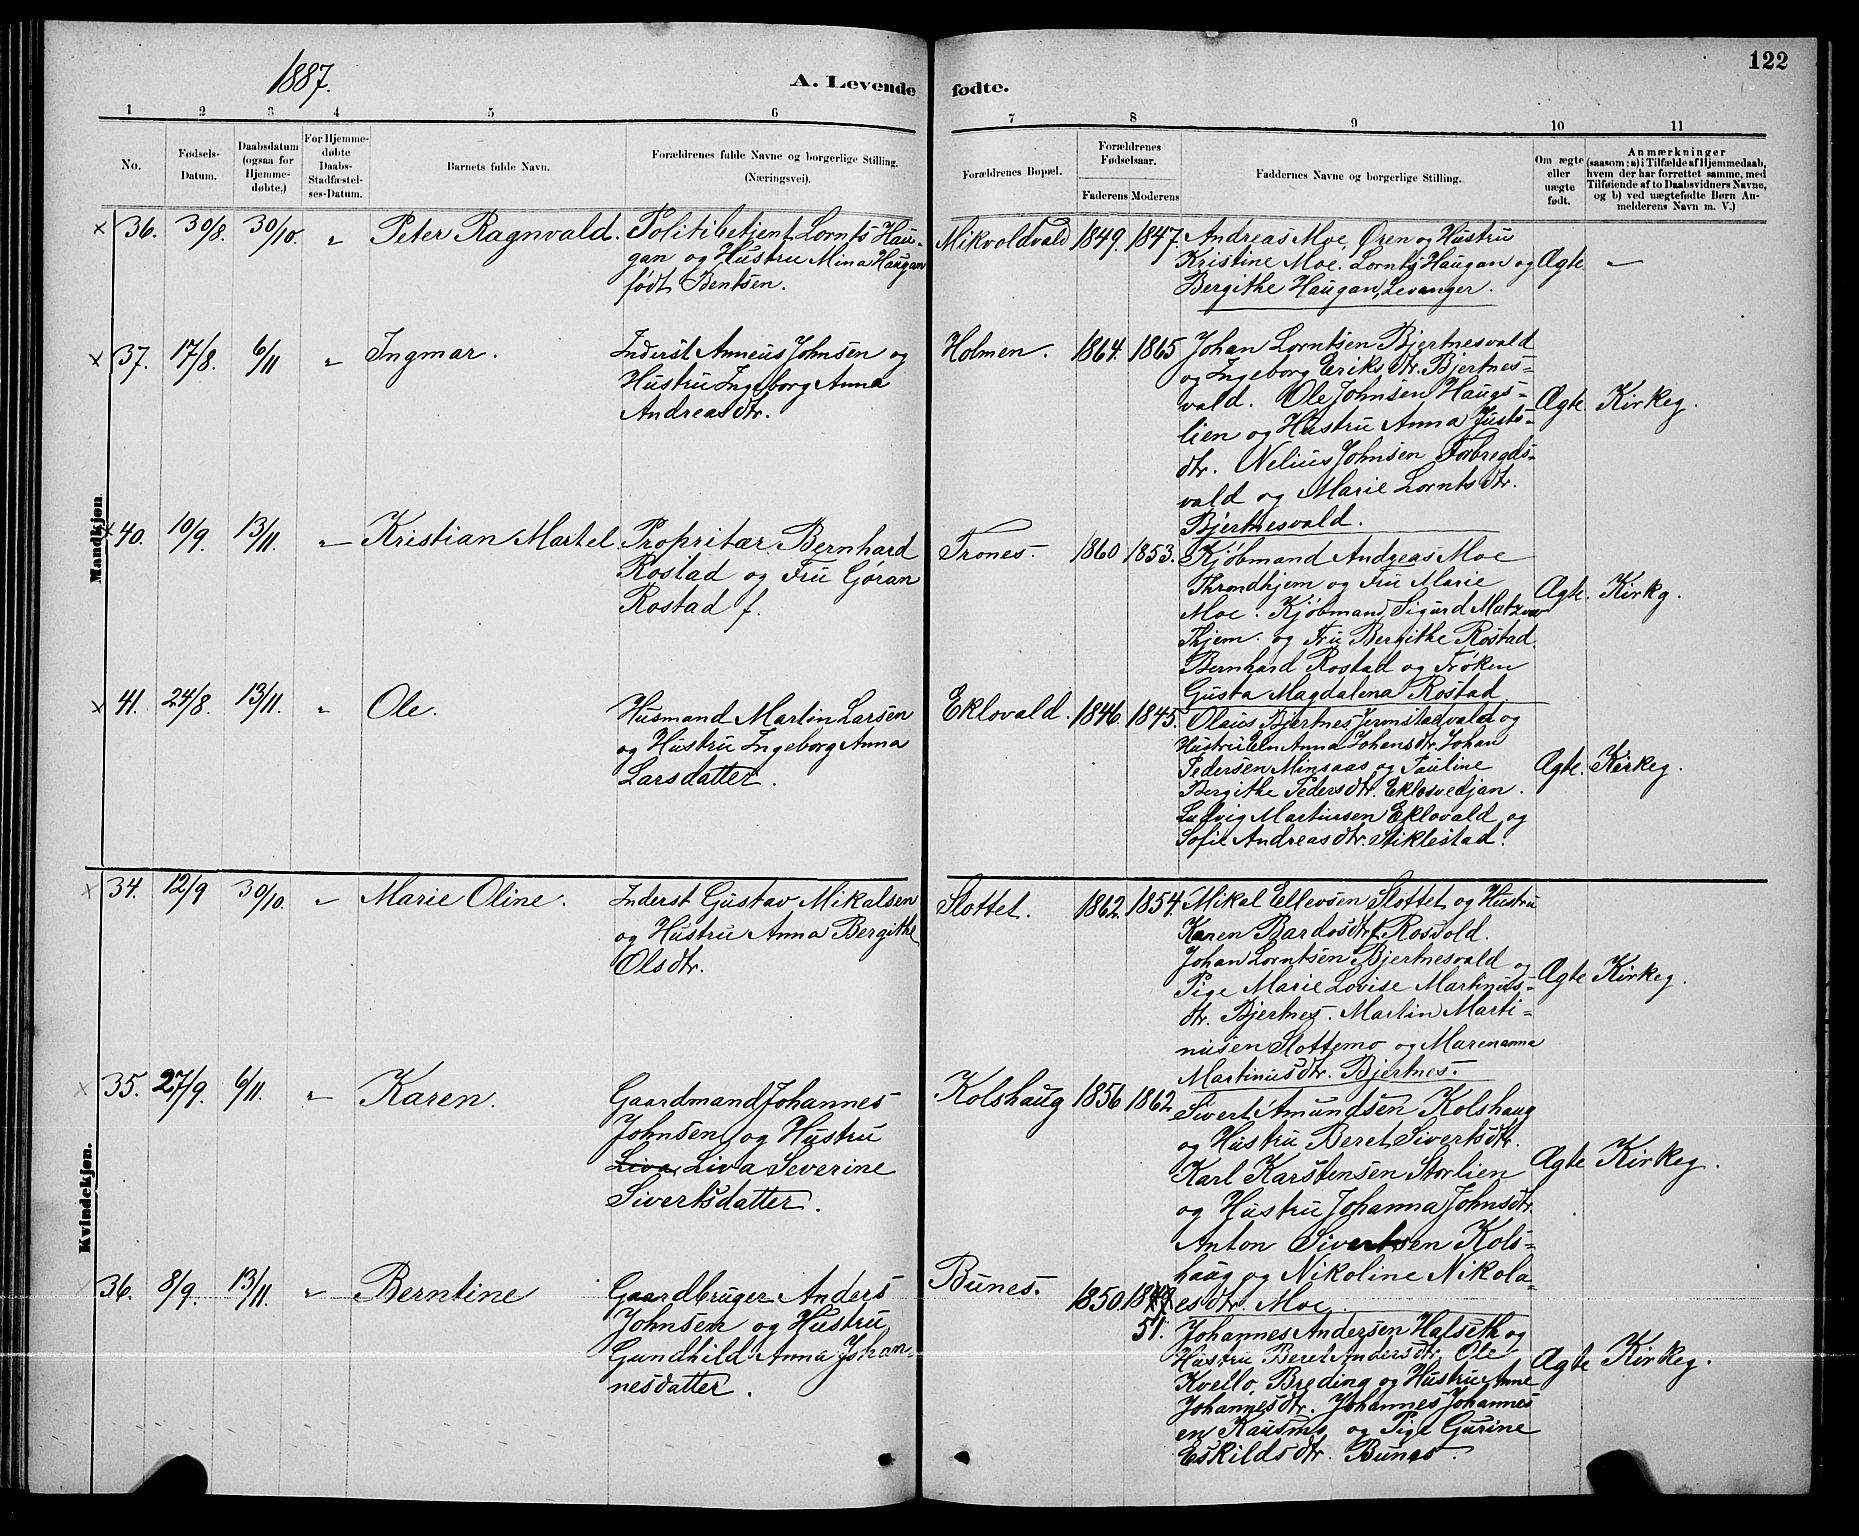 1887.
A. Levende fødte.
122
1 2 3 4 5 6 7 8 9 10 11
No.
Fødsels-
Datum.
Daabsdatum
(ogsaa for
Hjemme-
døbte.)
For Hjemme-
døbte
Daabs-
Stadfæstel-
ses-Datum.
Barnets fulde Navn.
Forældrenes fulde Navne og borgerlige Stilling.
(Næringsvei).
Forældrenes Bopæl.
Forældrenes
Fødselsaar.
Faderens Moderens
Faddernes Navne og borgerlige Stilling.
Om ægte
eller
uægte
født.
Anmærkninger
(saasom: a) i Tilfælde af Hjemmedaab,
hvem der har forrettet samme, med
Tilføiende af to Daabsvidners Navne,
og b) ved uægtefødte Børn An-
melderens Navn m. V.)
Mandkjøn
× 36. 30/8. 30/10. „ Peter Ragnvald.
Politibetjent Lornts Hau-
gan og Hustru Mina Haugan
født Bentsen.
Mikvoldvald 1849. 1847.
Andreas Moe, Øren og Hustru
Kristine Moe. Lornts Haugan og
Bergithe Haugan, Levanger.
Ægte „
× 37. 17/8. 6/11 „ Ingmar.
Inderst Anneus Johnsen og
Hustru Ingeborg Anna
Andreasdtr.
Holmen. 1864. 1865
Johan Lorntsen Bjertnesvald
og Ingeborg Eriksdtr. Bjertnes-
vald. Ole Johnsen Haugs-
lien og Hustru Anna Justs-
dtr. Nelius Johnsen Forbregds-
vald og Marie Lorntsdtr.
Bjertnesvald.
Ægte Kirkeg.
× 40. 10/9. 13/11. „ Kristian Martel.
Propritær Bernhard
Rostad og Fru Gøran
Rostad f.
Trones. 1860 1853.
Kjøbmand Andreas Moe
Throndhjem og Fru Marie
Moe. Kjøbmand Sigurd
Thjem. og Fru Bergithe Rostad.
Bernhard Rostad og Frøken
Gusta Magdalena Rostad
Ægte. Kirkg.
× 41. 24/8. 13/11. „ Ole.
Husmand Martin Larsen
og Hustru Ingeborg Anna
Larsdatter.
Eklovald. 1846. 1845.
Olaus Bjertnes, Jermstadvald og
Hustru Eln Anna Johansdtr. Johan
Pedersen Minsaas og Pauline
Bergithe Pedersdtr. Eklosvedjan.
Ludvig Martinsen Eklovald og
Sofie Andreasdtr. Stiklestad.
Ægte. Kirkeg.
Kvindekjøn.
× 34. 12/9 30/10. „ Marie Oline.
Inderst Gustav Mikalsen
og Hustru Anna Bergithe
Olsdtr.
Slottet. 1862. 1854.
Mikal Ellevsen Slottet og Hustru
Karen Bardosdtr. Rosvold.
Johan Lorntsen Bjertnesvald og
Pige Marie Lovise Martinus-
dtr. Bjertnes. Martin Marti-
nusen Slottemo og Marenanna
Martinusdtr. Bjertnes.
Ægte Kirkeg.
× 35. 27/9. 6/11. „ Karen.
Gaardmand Johannes
Johnsen og Hustru
Liva Liva Severine
Sivertsdatter.
Kolshaug 1856 1862
Sivert Amundsen Kolshaug
og Hustru Beret Sivertsdtr.
Karl Karstensen Storlien
og Hustru Johanna Johnsdtr.
Anton Sivertsen Kols-
haug og Nikoline Nikola-
esdtr. Moe.
Ægte Kirkeg.
36. 8/9. 13/11. „ Berntine
Gaardbruger Anders
Johnsen og Hustru
Gunhild Anna Johan-
nesdatter.
Bunes. 1850. 1849
51.
Johannes Andersen Halseth og
Hustru Beret Andersdtr. Ole
Kvello, Breding og Hustru Anne
Johannesdtr. Johannes Johannes
en Kausmo og Pige Gurine
Eskildsdtr. Bunes.
Ægte Kirkeg.